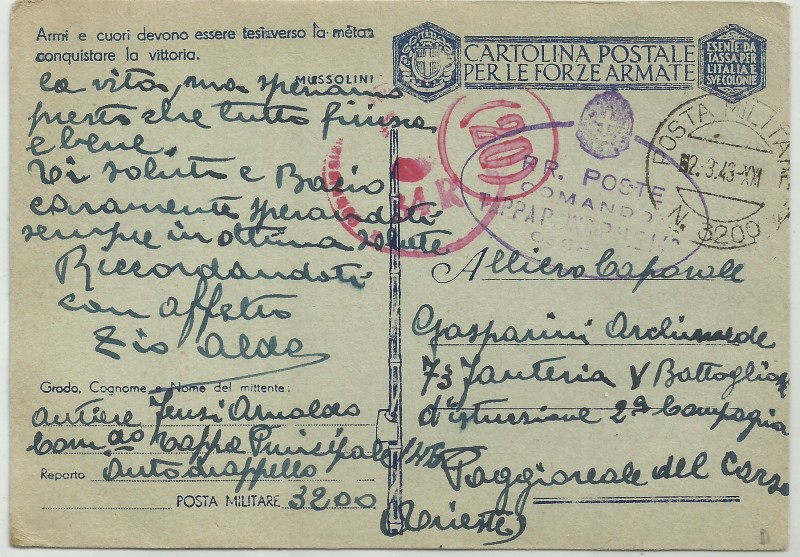 Armi e cuori devono essere tesi verso la mèta:
conquistare la vittoria.
MUSSOLINI
la vita, ma speriamo
presto che tutto finisca
e bene.
Ti saluto e Bacio
caramente sperandoti
sempre in ottima salute
Ricordandoti
con affetto
Zio Aldo
Grado, Cognome e Nome del mittente:
autiere Tensi Arnaldo
Com.do Tappa Principale /46
Reparto Autodrappello
POSTA MILITARE 3200
CARTOLINA POSTALE
PER LE FORZE ARMATE
ESENTE DA
TASSA PER
L'ITALIA E
SVE COLONIE
20
34 R
RR. POSTE
COMANDO
POSTA MILITARE
2.3.43-XXI
N. 3200
Alliero Caporale
Gasparini Archimede
73 Fanteria V Battaglione
d'istruzione 2a Compagnia
Poggioreale del Carso
(Trieste)
D